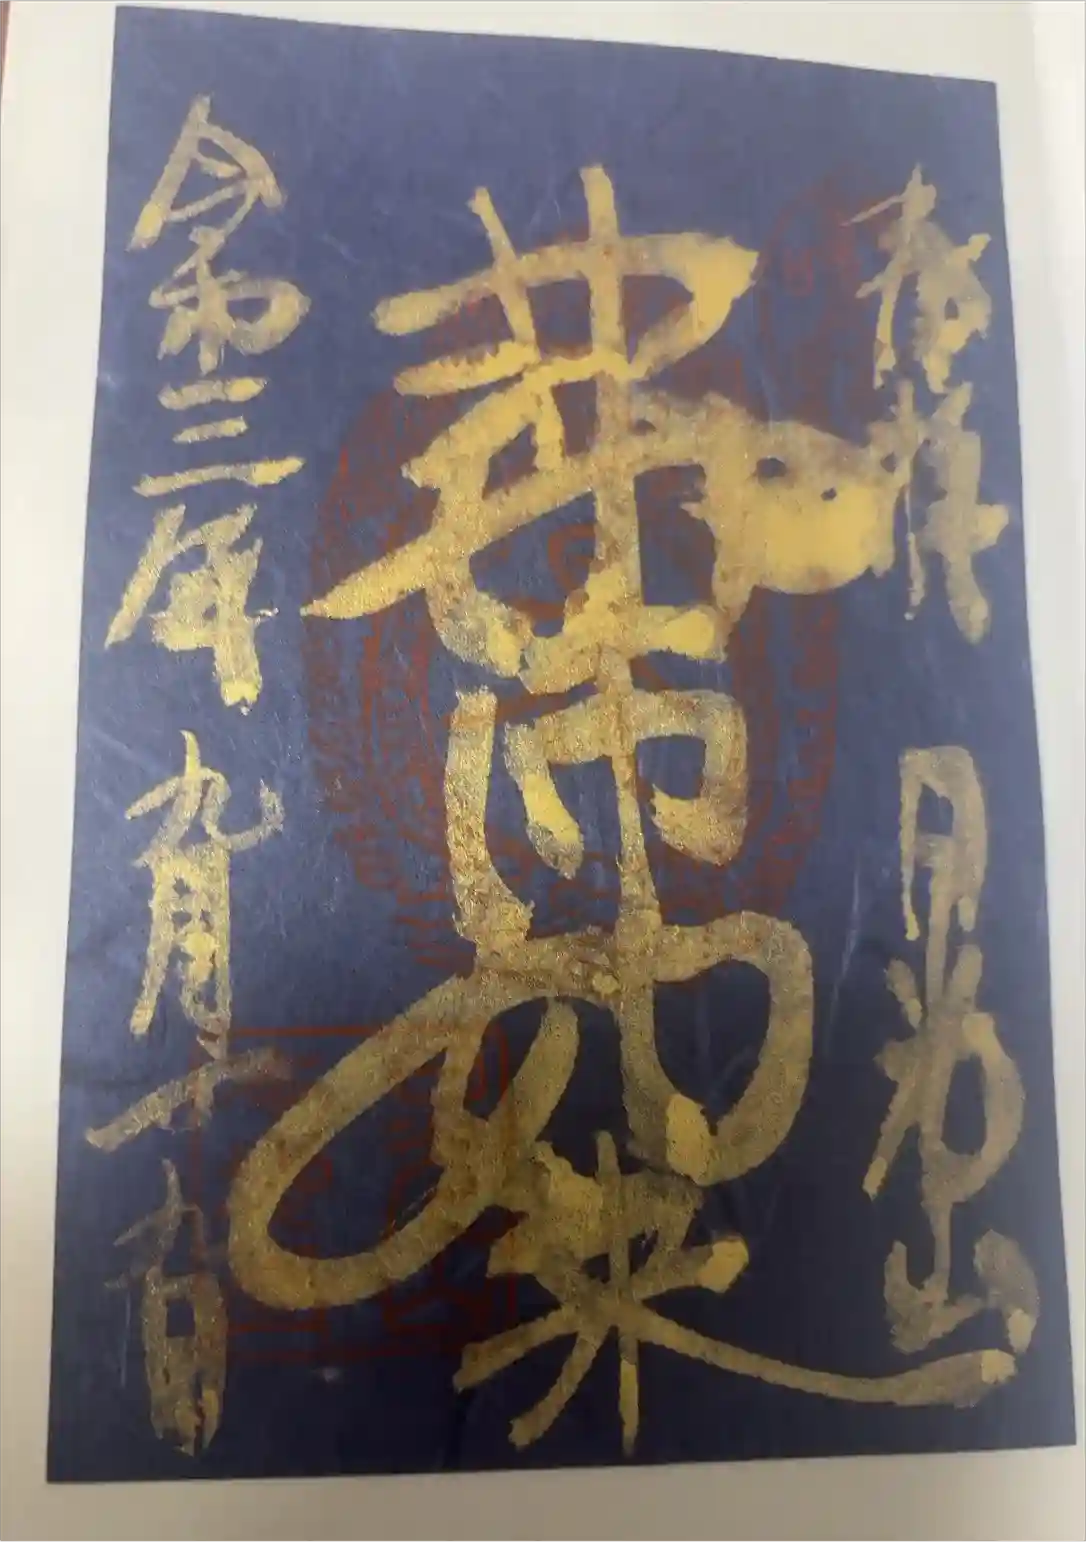 奉拝
山
薬師如来
令和三年九月十九日